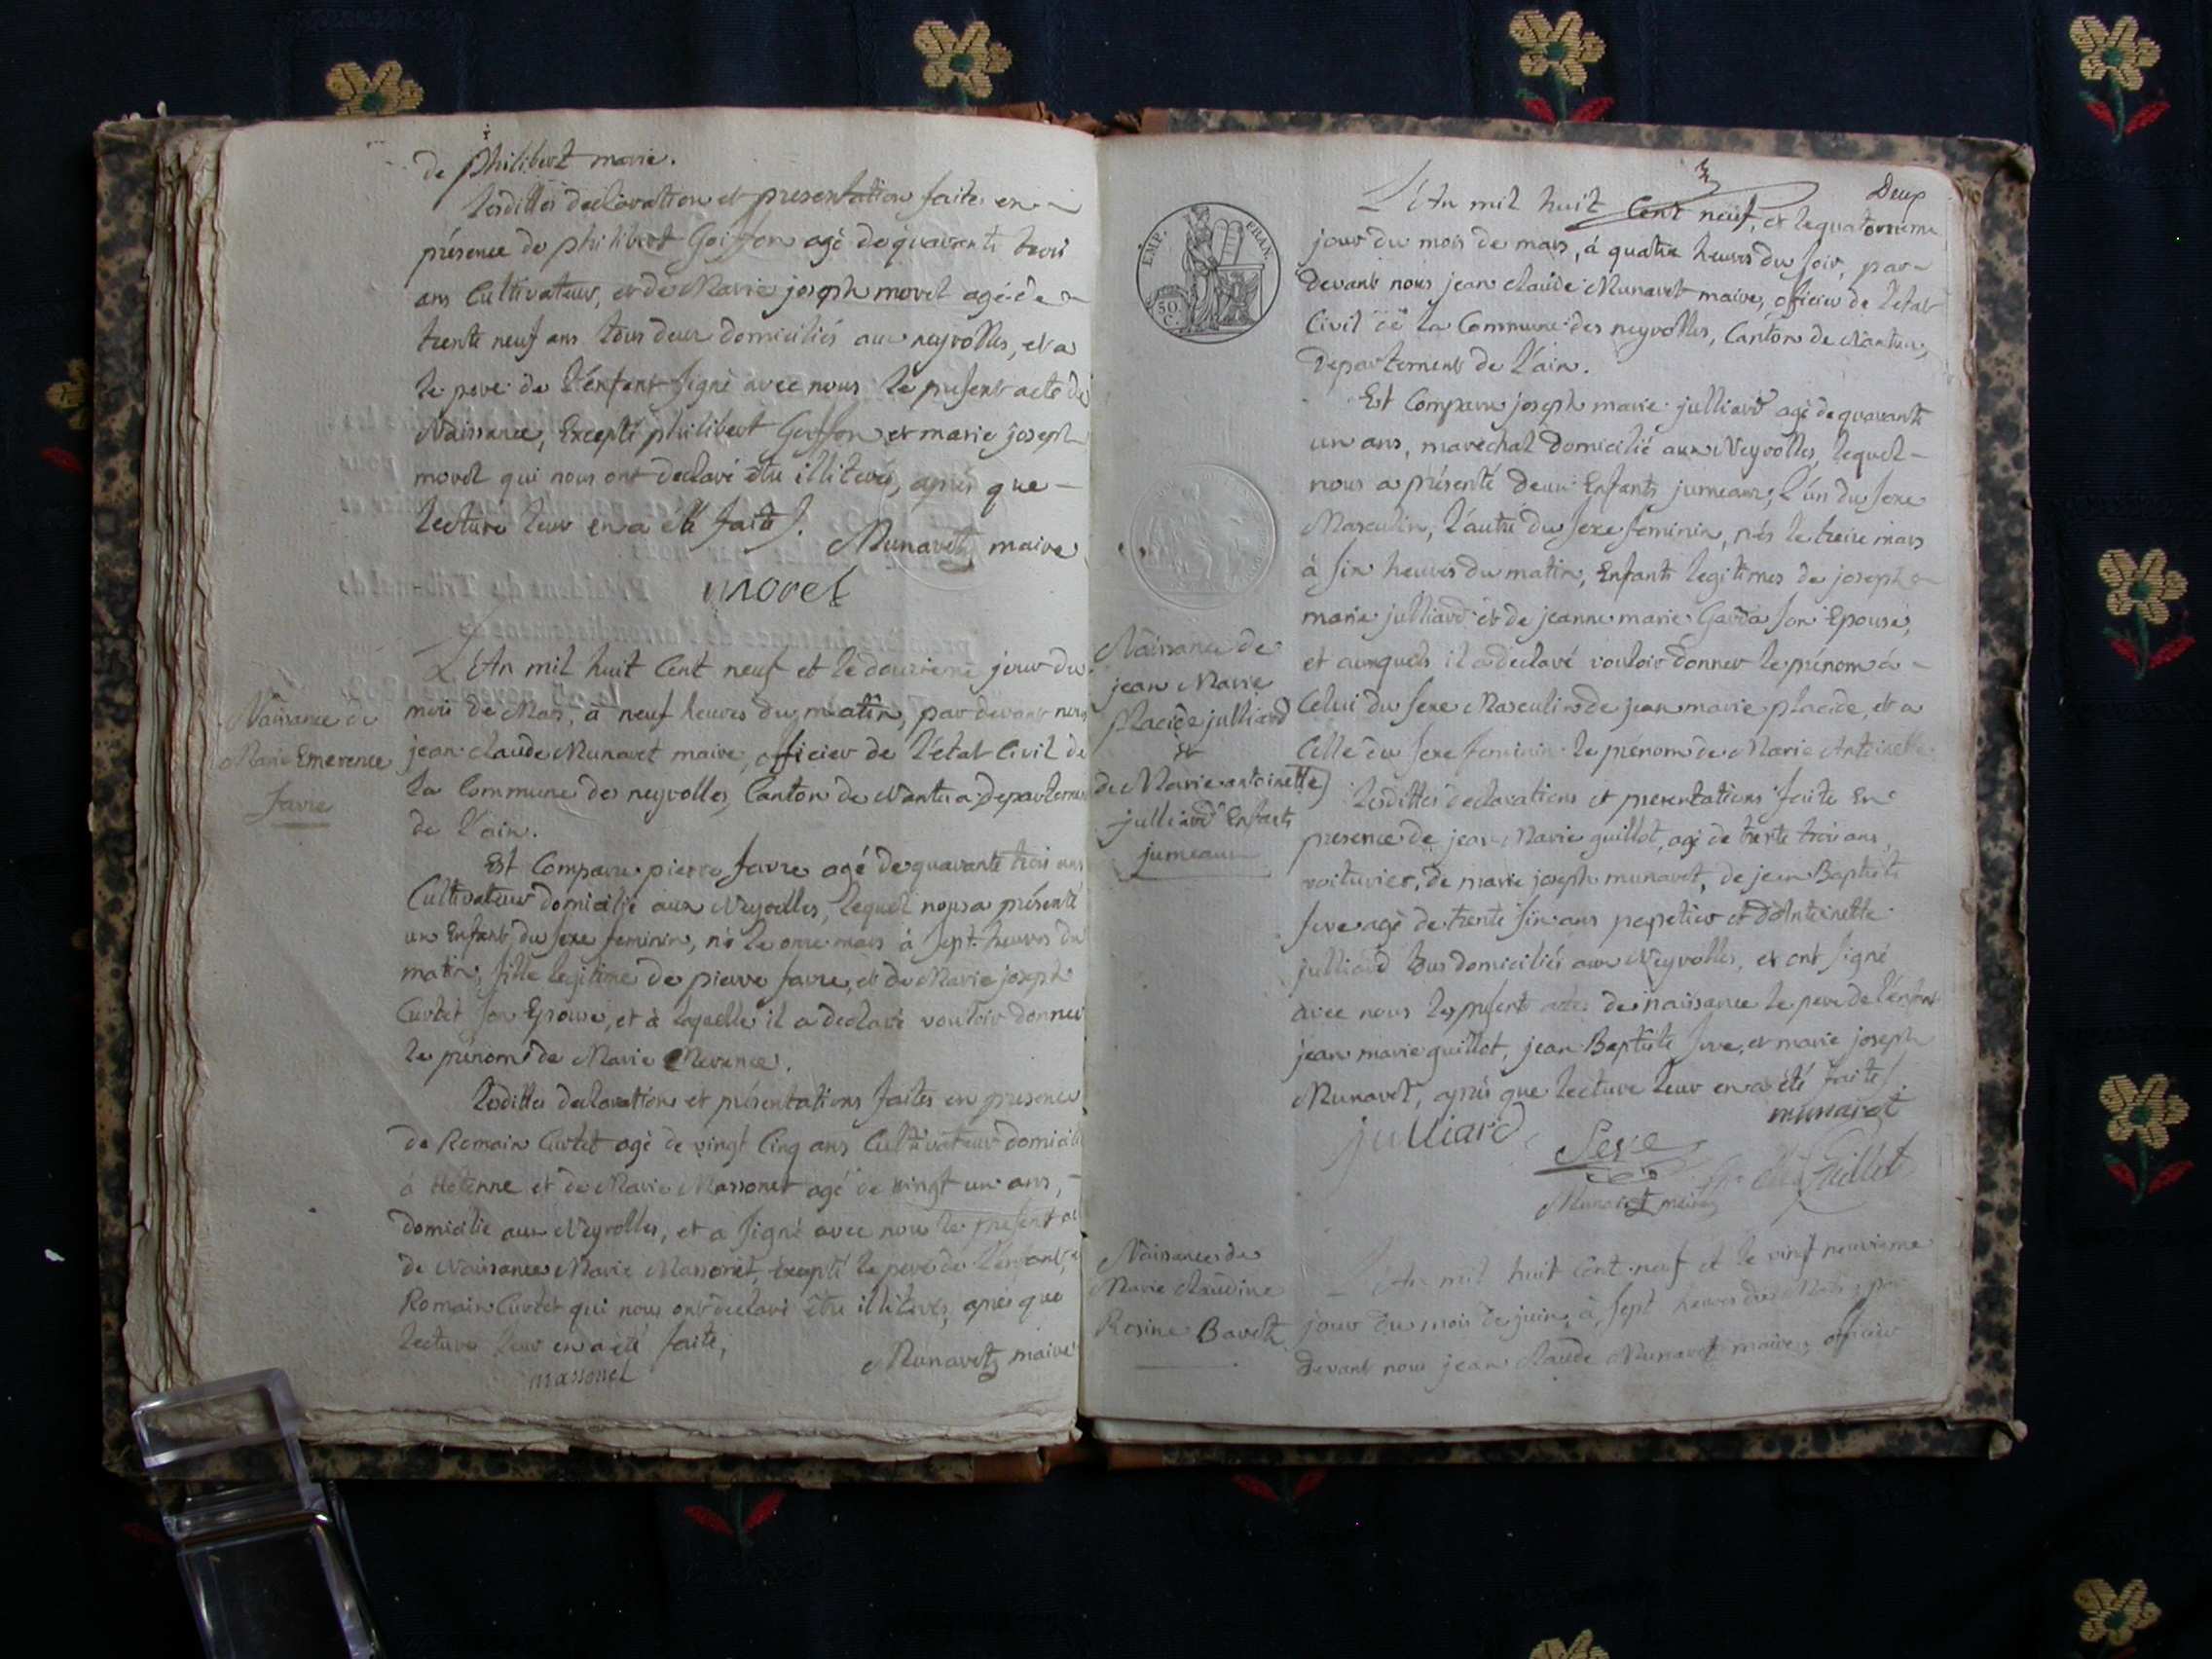 de philibert marie.
lesdittes declaration et presentation faites en
présence de philibert Goiffon agé de quarante trois
ans Cultivateur, et de Marie joseph morel agé de
trente neuf ans tous deux domiciliés aux neyrolles, et a
le pere de l'enfant signé avec nous le present acte de
Naissance, Excepté philibert Goiffon et marie joseph
morel qui nous ont declaré être illiterés, après que
lecture leur en a été faite.
Munaret maire
morel
Naissance de
Marie Emerence
favre
L'An mil huit Cent neuf et le douzieme jour du
mois de Mars, à neuf heures du matin, par devant nous
jean claude Munaret maire, officier de l'état Civil de
la Commune des neyrolles, Canton de Nantua departement
de l'ain.
Est Comparu pierre favre agé de quarante trois ans
Cultivateur domicilié aux Neyrolles, lequel nous a présenté
un Enfant du sexe feminin, né le onze mars à sept heures du
matin, fille legitime de pierre favre, et de Marie joseph
Curtet son Epouse, et à laquelle il a declaré vouloir donner
le prénom de Marie Merence.
lesdittes declarations et présentations faites en presence
de Romain Curtet agé de vingt Cinq ans Cultivateur domicilié
à et de Marie Massonet agé de vingt un ans,
domicilié aux Neyrolles, et a signé avec nous le present
de Naissance Marie Massonet, Excepté le pere de l'enfant, et
Romain Curtet qui nous ont declaré être illiterés, après que
lecture leur en a été faite,
Munaret maire
massonet
Deux
EMP. FRAN.
50 C.
L'An mil huit Cent neuf, et le quatorzieme
jour du mois de mars, à quatre heures du soir, par
devant nous jean claude Munaret maire, officier de l'etat
Civil de la Commune des neyrolles, Canton de Nantua,
Departement de l'ain.
Est Comparu joseph marie julliard agé de quarante
un ans, marechal domicilié aux Neyrolles, lequel
nous a présenté deux Enfants jumeaux, l'un du sexe
Masculin, l'autre du sexe feminin, nés le treize mars
à six heures du matin, Enfants legitimes de joseph
marie julliard et de jeanne marie son Epouse,
et auxquels il a declaré vouloir donner le prénom à
Celui du sexe Masculin de jean marie placide, et a
Celle du sexe feminin le prénom de Marie Antoinette
Naissance de
jean Marie
placide julliard
&
de Marie antoinette
julliard Enfants
jumeaux
lesdittes declarations et presentations faite En
presence de jean Marie guillot, agé de trente trois ans,
voiturier, de marie joseph munaret, de jean Baptiste
Serve agé de trente six ans papetier et d'Antoinette
julliard tous domiciliés aux Neyrolles, et ont signé
avec nous les present actes de naissance le pere de l'enfant
jean marie guillot, jean Baptiste Serve, et marie joseph
Munaret, après que lecture leur en a été faite.
julliard munaret
Serve
Guillot
Munaret maire
Naissance de
Marie Claudine
Rosine Bavoz
L'An mil huit Cent neuf et le vingt neuvieme
jour du mois de juin, à sept heures du Matin, par
devant nous jean claude Munaret maire, officier